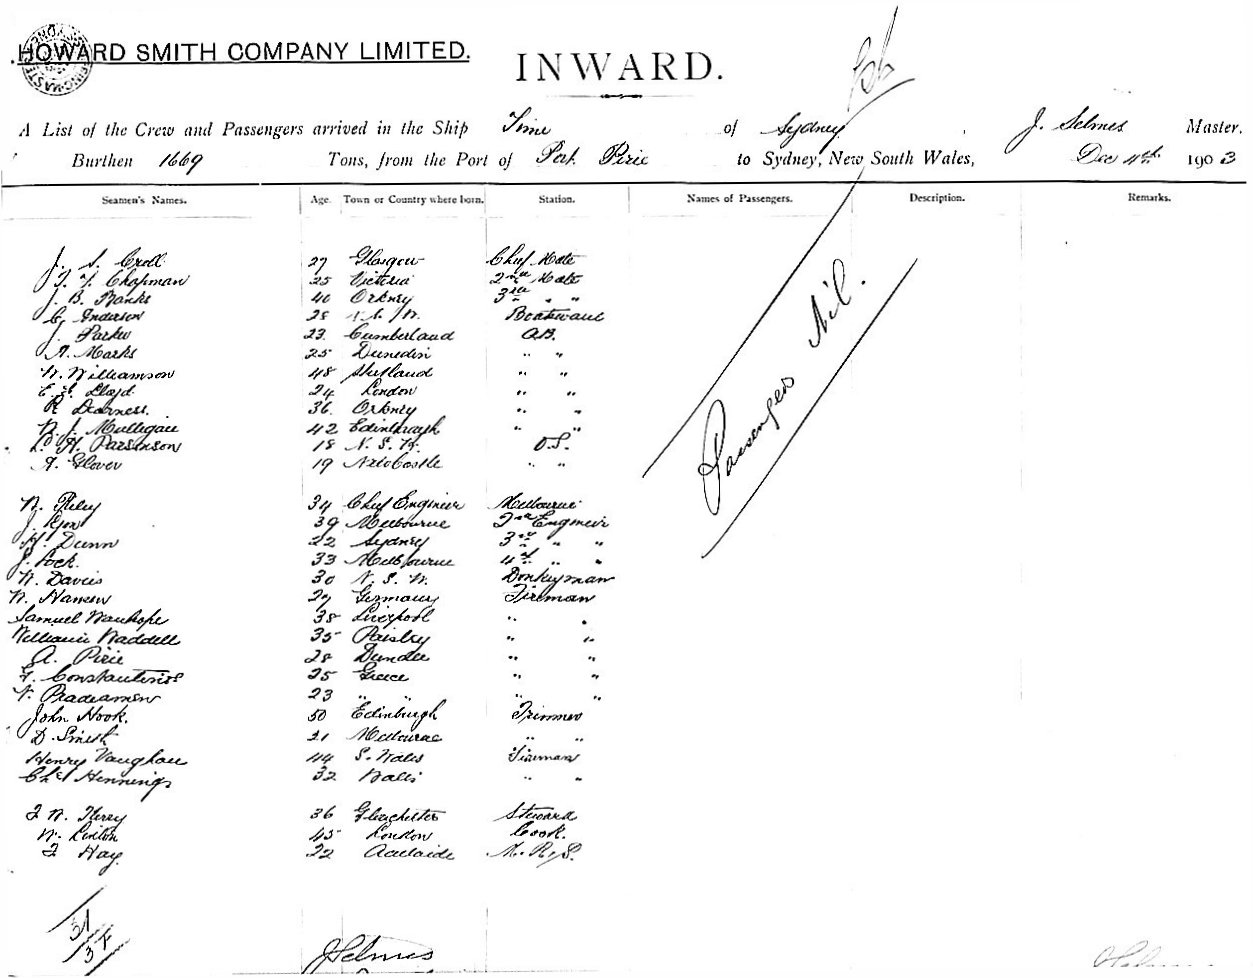 HOWARD SMITH COMPANY LIMITED.
INWARD.
A List of the Crew and Passengers arrived in the Ship Time of Sydney, J. Selmes Master,
Burthen 1669 Tons, from the Port of Port Pirie to Sydney, New South Wales, Dec 4th 1903
Seamen's Names. Age. Town or Country where born. Station. Names of Passengers. Description. Remarks.
J. S. Croll 27 Glasgow Chief Mate
Chapman 25 Victoria 2nd Mate
J. B. Banks 40 Orkney 3rd " "
C. Anderson 28 Boatswain
J. Parker 23 Cumberland A.B.
A. Marks 25 Dunedin " "
W. Williamson 48 Shetland " "
Lloyd 24 London " "
R Dearness. 36 Orkney " "
Mulligan 42 Edinburgh " "
H. Parsonson 18 N. S. W. O.S.
A. Glover 19 Newcastle " "
Passengers Nil.
W. 34 Chief Engineer Melbourne
J. 39 Melbourne 2nd Engineer
H. Dunn 22 Sydney 3rd " "
J. 33 Melbourne 4th " "
W. Davies 30 N. S. W. Donkeyman
W. Hansen 27 Germany Fireman
Samuel Wauhope 38 Liverpool " "
William Waddell 35 Paisley " "
A. Pirie 28 Dundee " "
Constantinos 25 Greece " "
N. 23 " " " "
John Hook. 50 Edinburgh Trimmer
D. Smith 21 Melbourne " "
Henry Vaughan 44 S. Wales Fireman
Chas Hennings 32 Wales " "
36 Steward
W. Linton 45 London Cook.
Hay 22 Adelaide M. R. S.
31
J Selmes